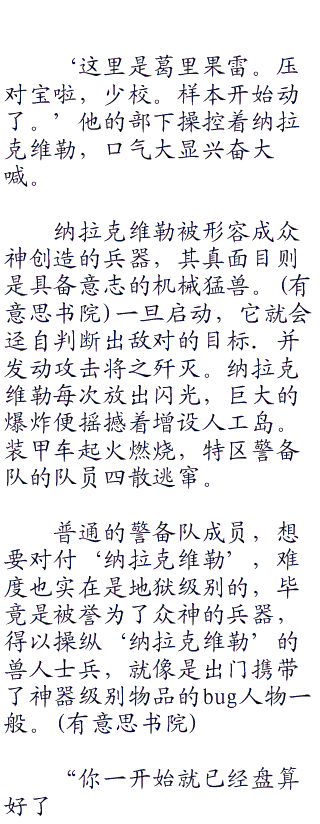 ‘这里是葛里果雷。压
对宝啦，少校。样本开始动
了。’他的部下操控着纳拉
克维勒，口气大显兴奋大
喊。
纳拉克维勒被形容成众
神创造的兵器，其真面目则
是具备意志的机械猛兽。(有
意思书院)一旦启动，它就会
迳自判断出敌对的目标．并
发动攻击将之歼灭。纳拉克
维勒每次放出闪光，巨大的
爆炸便摇撼着增设人工岛。
装甲车起火燃烧，特区警备
队的队员四散逃窜。
普通的警备队成员，想
要对付‘纳拉克维勒’，难
度也实在是地狱级别的，毕
竟是被誉为了众神的兵器，
得以操纵‘纳拉克维勒’的
兽人士兵，就像是出门携带
了神器级别物品的bug人物一
般。(有意思书院)
“你一开始就已经盘算
好了